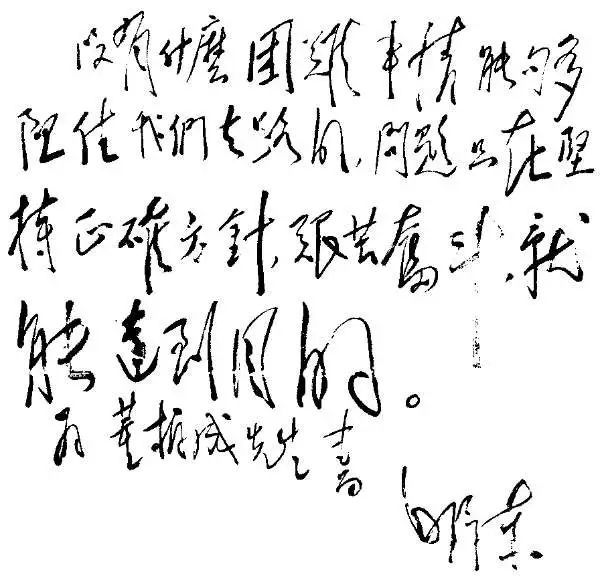 沒有什麼困難事情能夠多
阻住我們去路的，問題只在堅
持正確方針，艱苦奮斗，就
能達到目的。
為董振成先生書
毛澤東